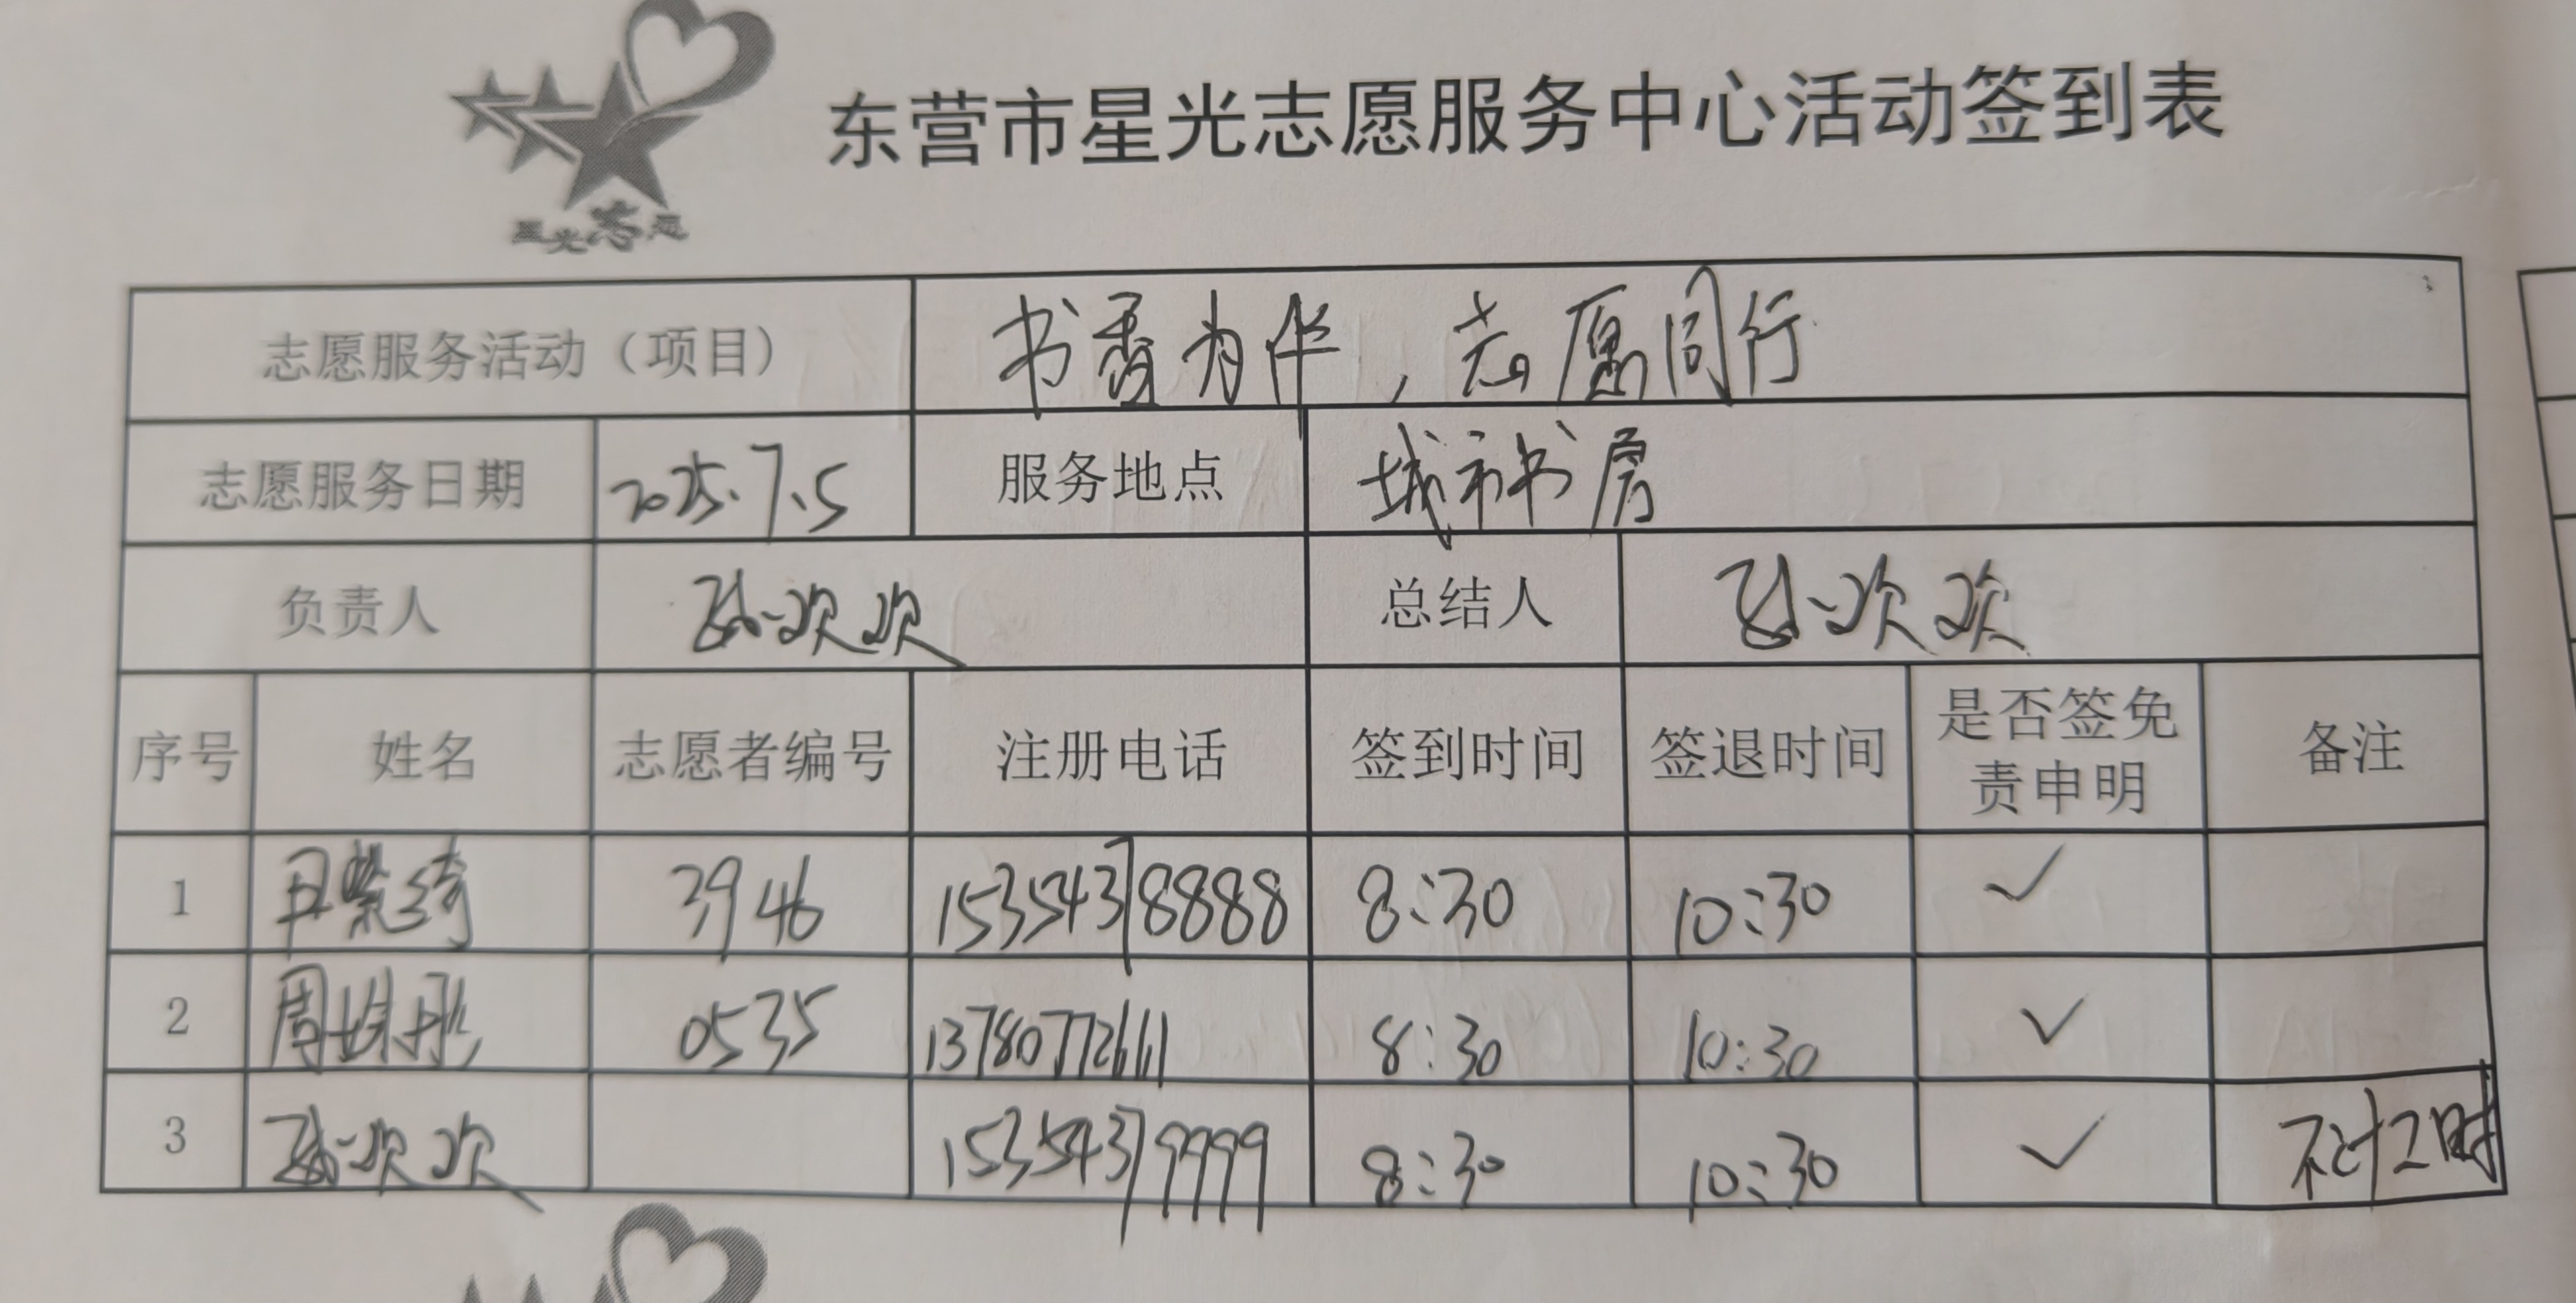 东营市星光志愿服务中心活动签到表
星光志愿
志愿服务活动（项目） 书香为伴，志愿同行
志愿服务日期 2025.7.5 服务地点 城市书房
负责人 孙欢欢 总结人 孙欢欢
序号 姓名 志愿者编号 注册电话 签到时间 签退时间 是否签免责申明 备注
1 尹紫绮 3946 15354378888 8:30 10:30 ✓
2 周 彤 0535 13780772611 8:30 10:30 ✓
3 孙欢欢 15354379999 8:30 10:30 ✓ 不计工时